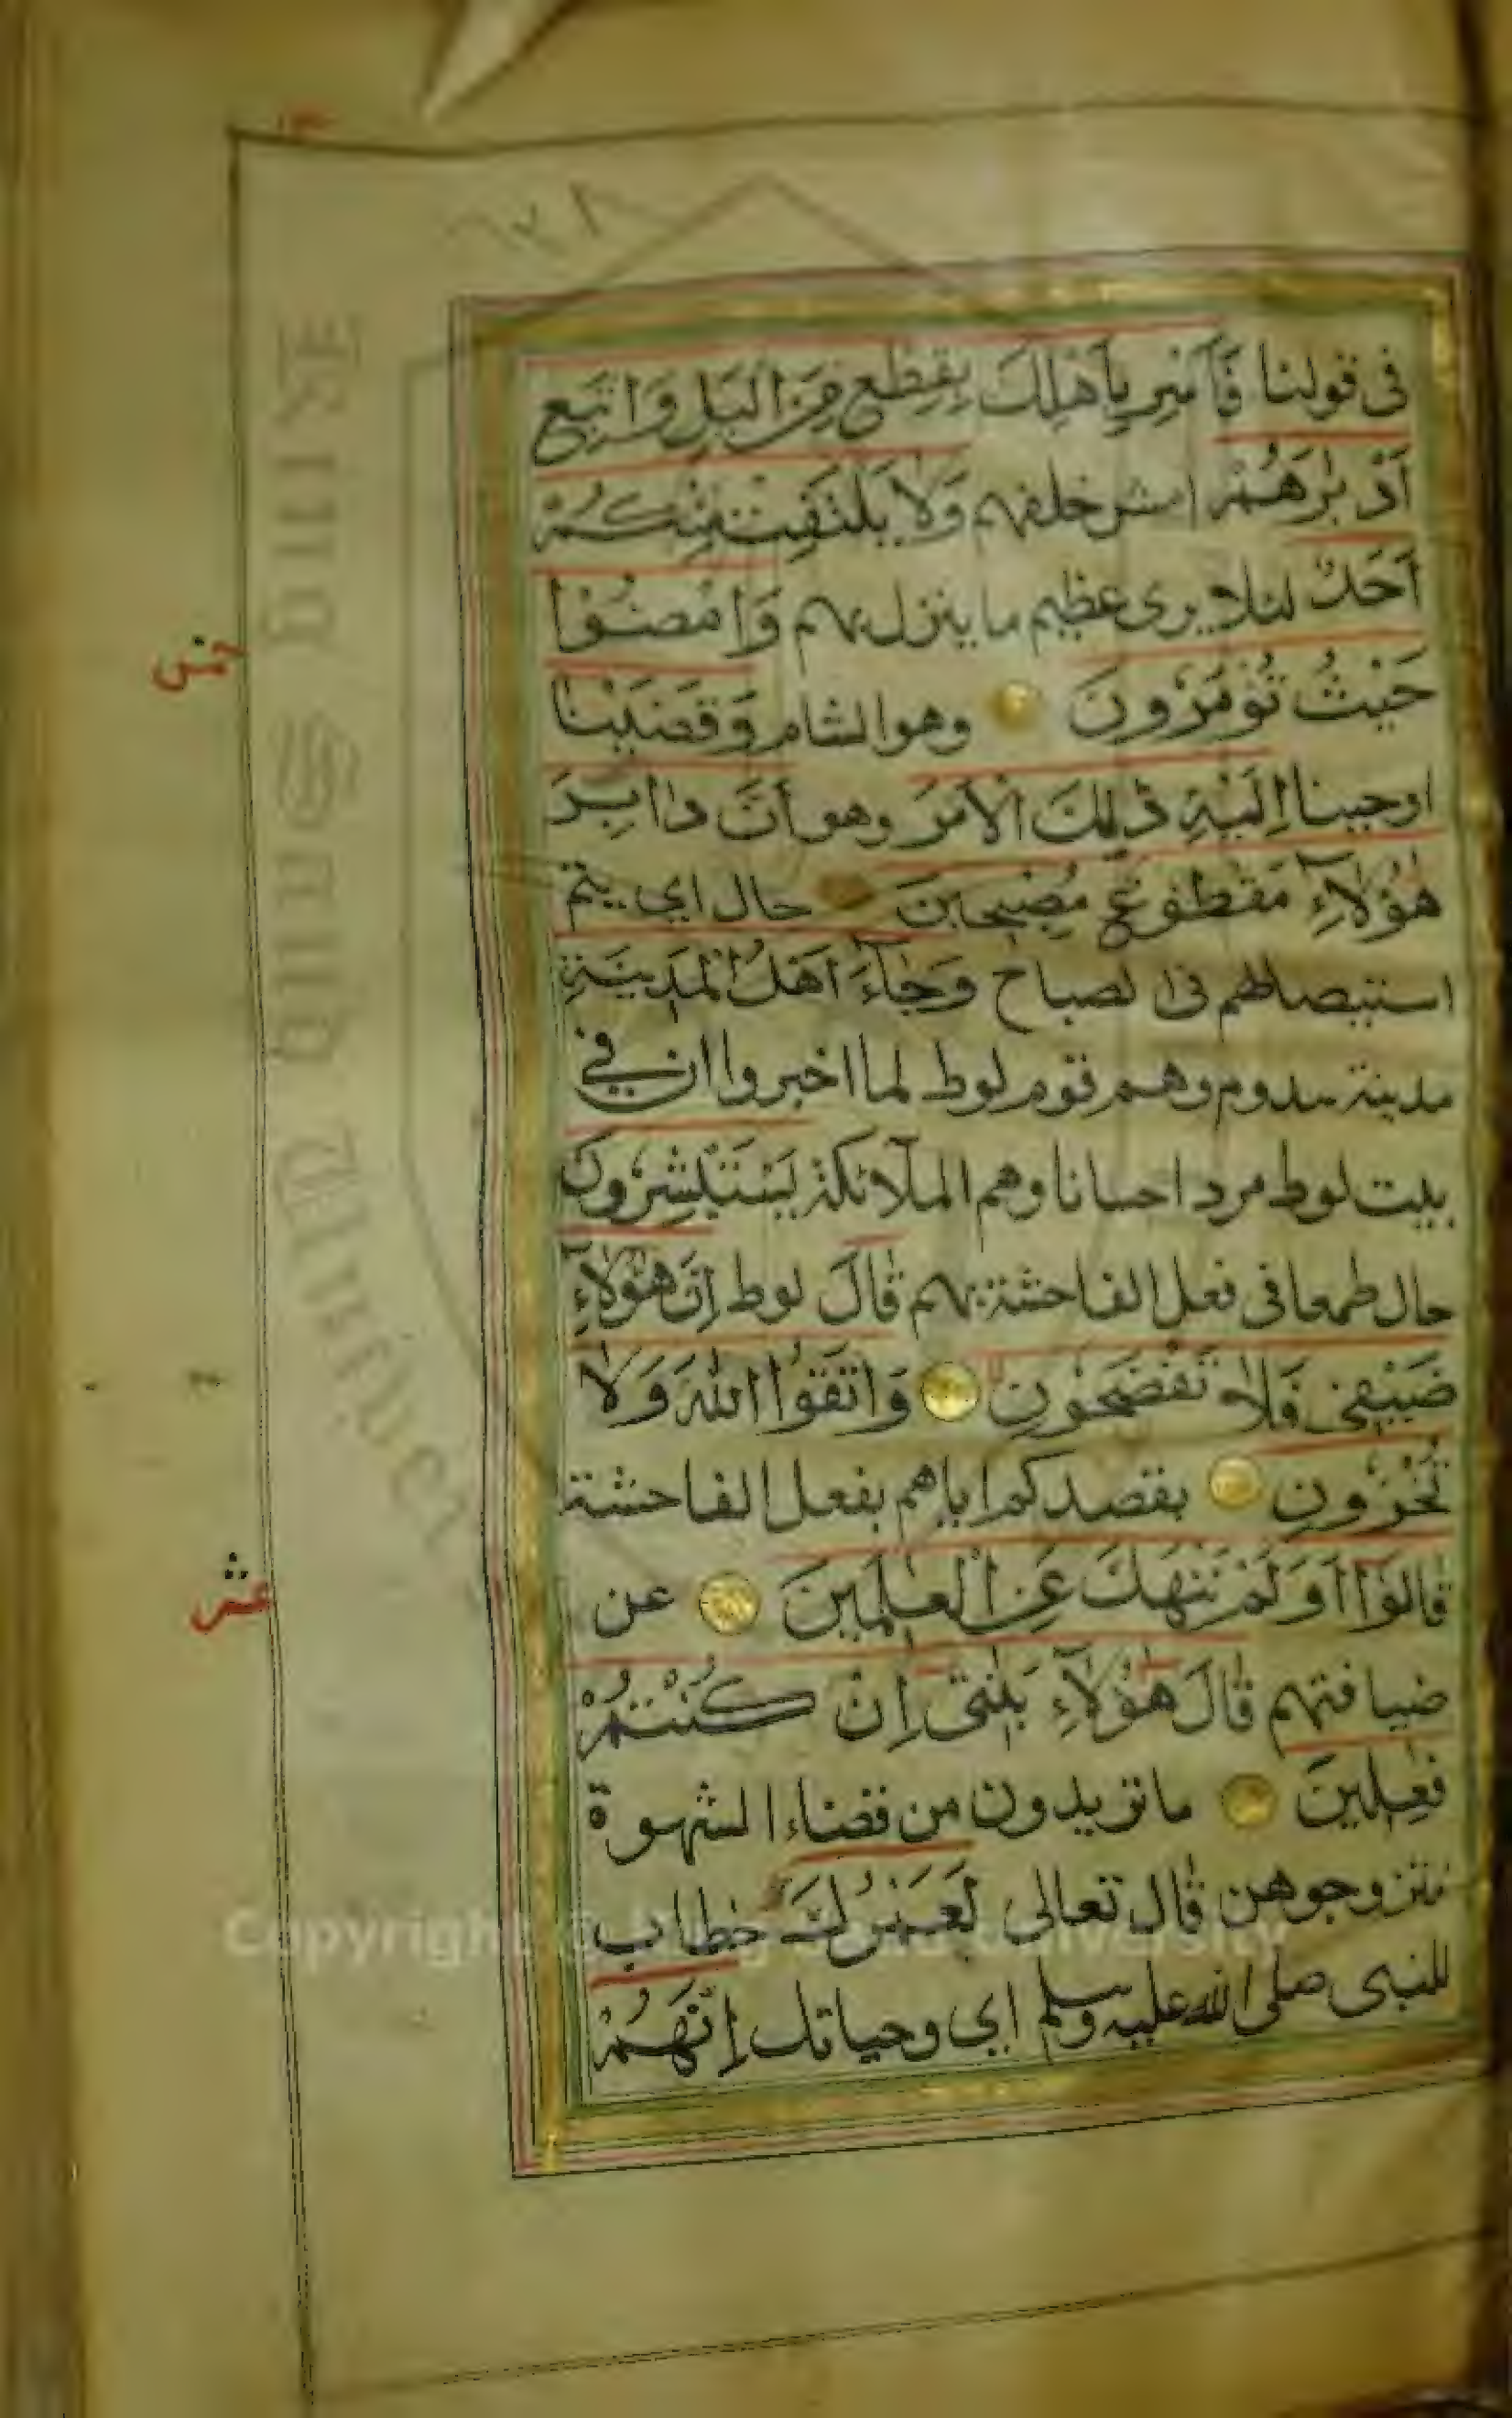 في قولنا فَأَسْرِ بِأَهْلِكَ بِقِطْعٍ مِنَ الَّيْلِ وَاتَّبِعْ
أَدْبٰرَهُمْ امش خلفهم وَلَا يَلْتَفِتْ مِنْكُمْ
أَحَدٌ لئلا يرى عظيم ما ينزل بهم وَامْضُوْا
حَيْثُ تُؤْمَرُونَ وهو الشام وَقَضَيْنَا
اوحينا إِلَيْهِ ذٰلِكَ الْأَمْرَ وهو أَنَّ دَابِرَ
هٰؤُلَآءِ مَقْطُوْعٌ مُصْبِحِينَ حال اي يتم
استيصالهم في الصباح وَجَآءَ اَهْلُ الْمَدِيْنَةِ
مدينة سدوم وهم قوم لوط لما اخبروا ان في
بيت لوط مرد احسانا وهم الملآئكة يَسْتَبْشِرُونَ
حال طمعا في فعل الفاحشة بهم قَالَ لوط إِنَّ هٰؤُلَآءِ
ضَيْفِي فَلَا تَفْضَحُوْنِ وَاتَّقُوا اللّٰهَ وَلَا
تُخْزُونِ بقصدكم اياهم بفعل الفاحشة
قَالُوْآ أَوَلَمْ نَنْهَكَ عَنِ الْعٰلَمِينَ عن
ضيافتهم قَالَ هٰؤُلَآءِ بَنٰتِي إِنْ كُنْتُمْ
فٰعِلِينَ ما تريدون من قضاء الشهوة
فتزوجوهن قال تعالى لَعَمْرُكَ خطاب
للنبى صلى الله عليه وسلم اي وحياتك إِنَّهُمْ
خمس
عشر
Copyright © King Saud University